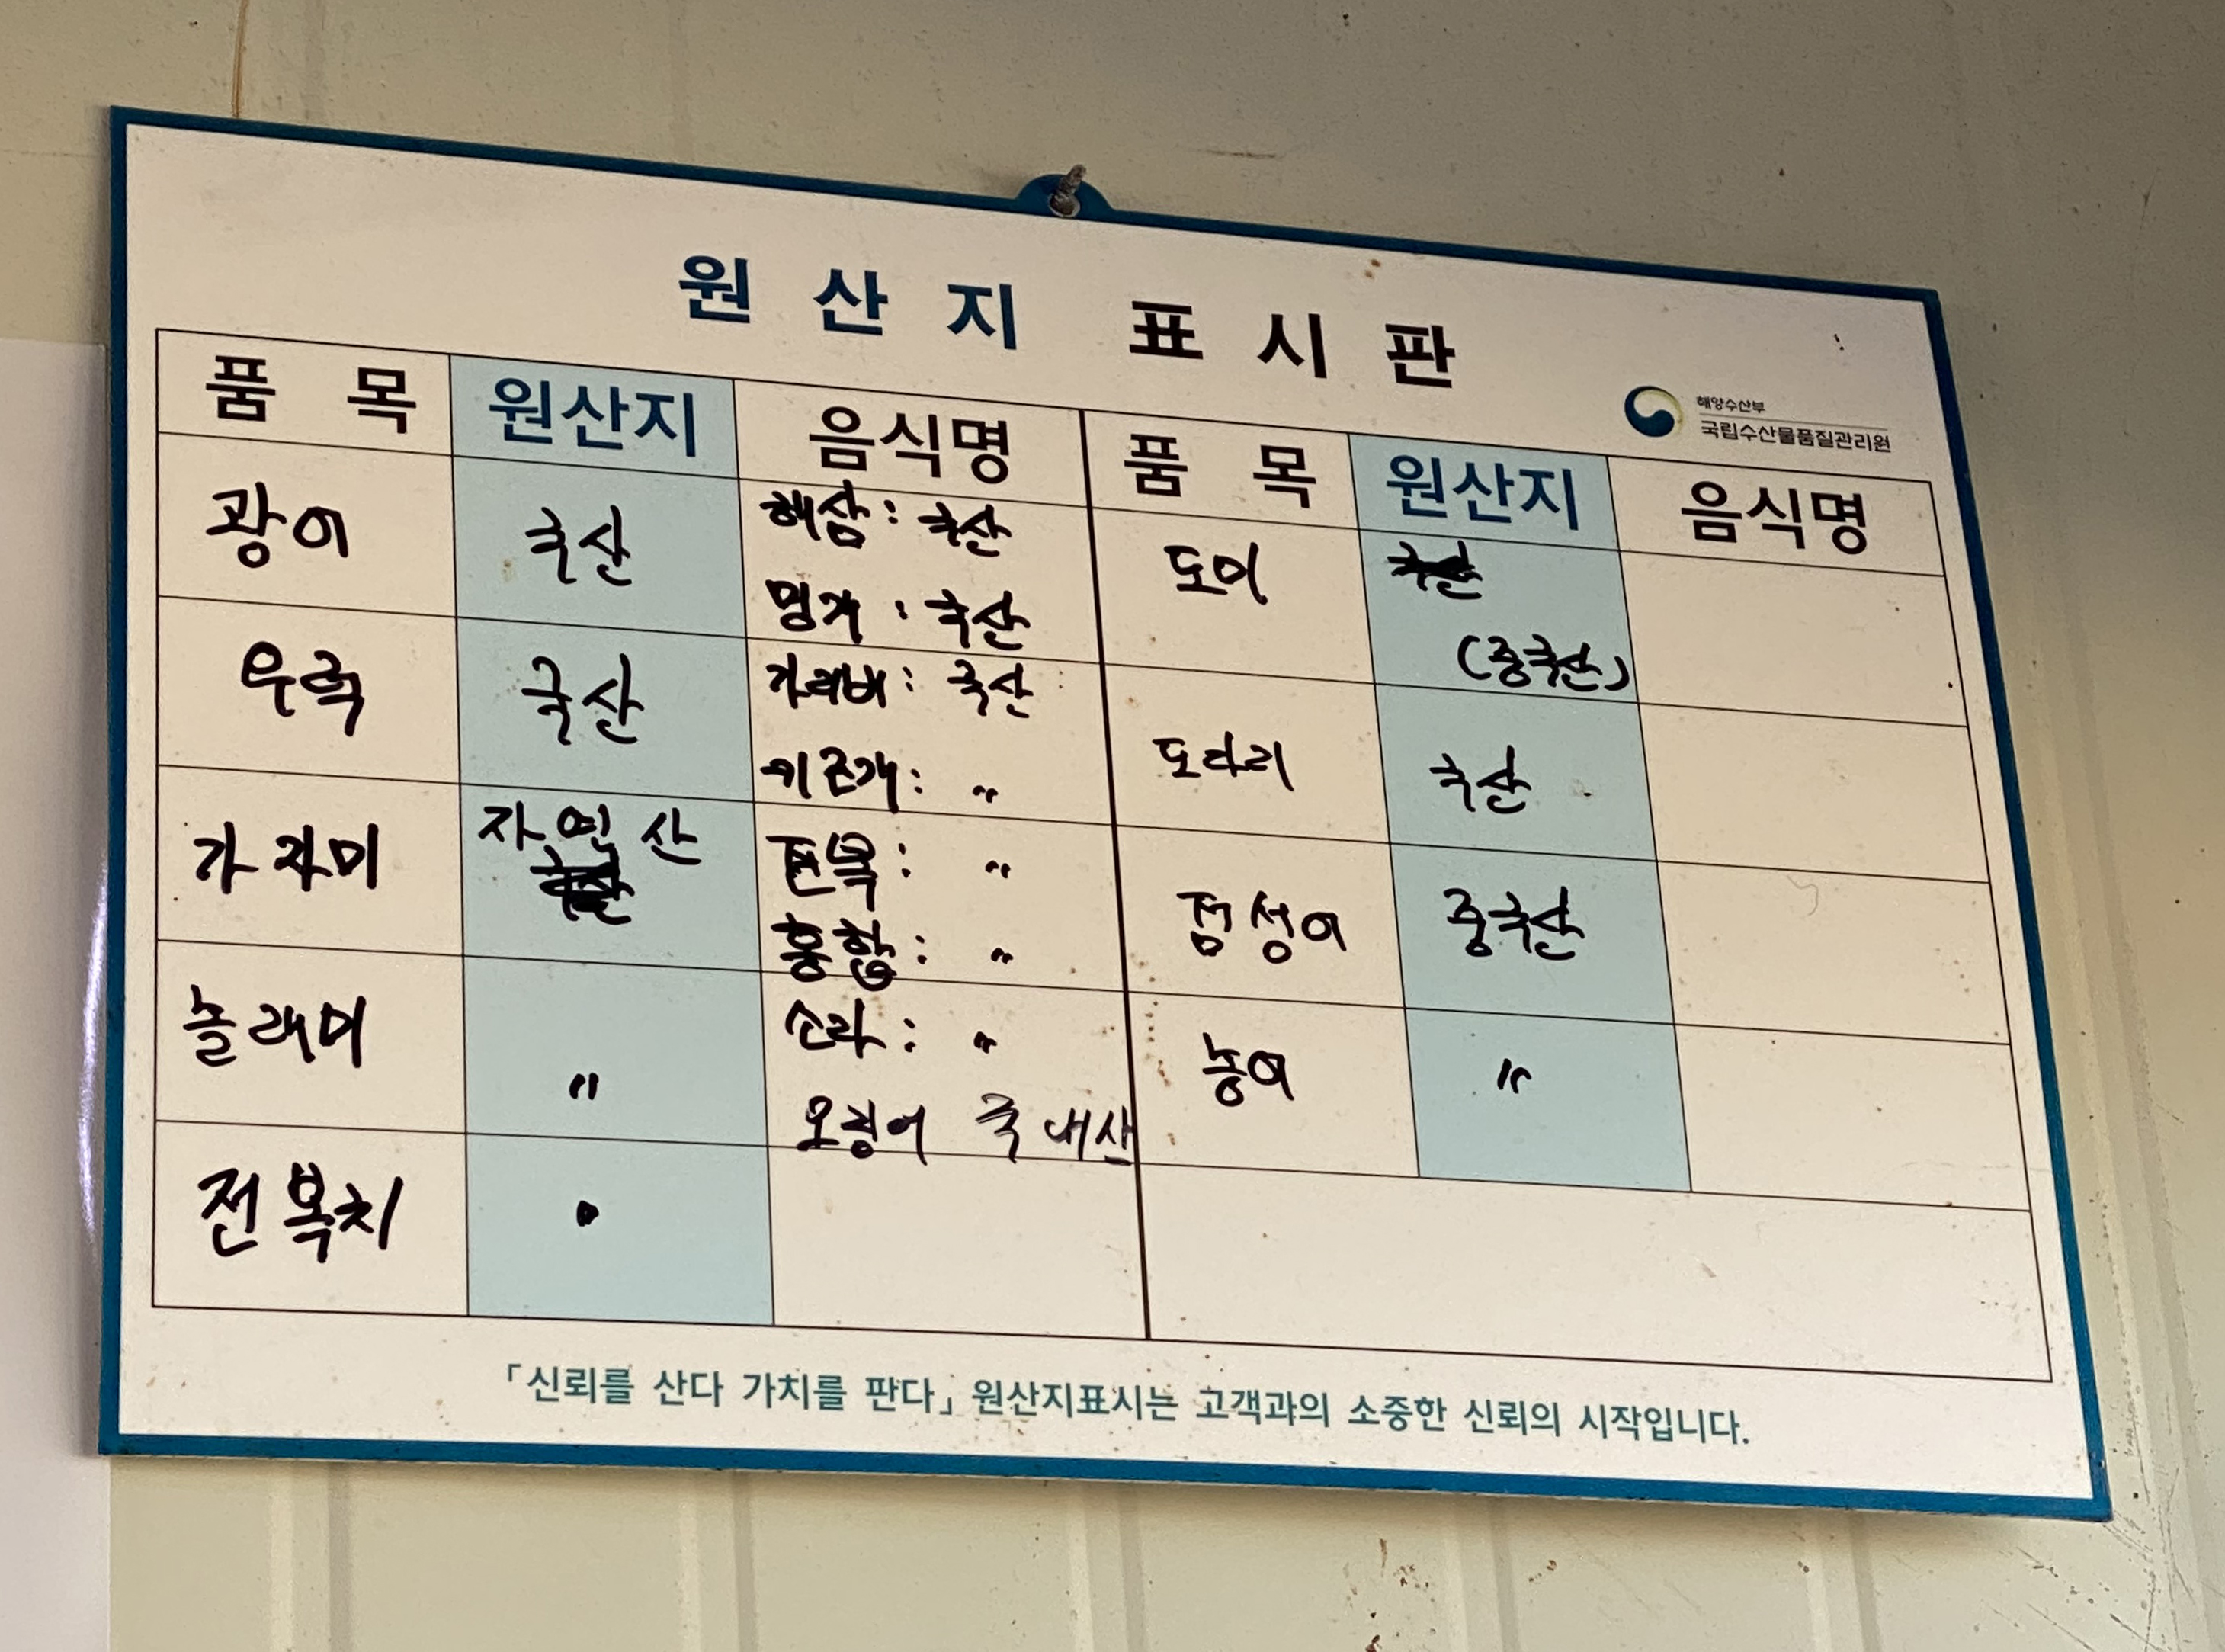 원산지 표시판
해양수산부
국립수산물품질관리원
품 목 원산지 음식명 품 목 원산지 음식명
광어 국산 해삼: 국산 도미 국산
멍게: 국산 (중국산)
우럭 국산 가리비: 국산 도다리 국산
키조개: "
가자미 자연산 전복: " 점성어 중국산
국산 홍합: "
놀래미 " 소라: " 농어 "
오징어 국내산
전복치 "
「신뢰를 산다 가치를 판다」 원산지표시는 고객과의 소중한 신뢰의 시작입니다.